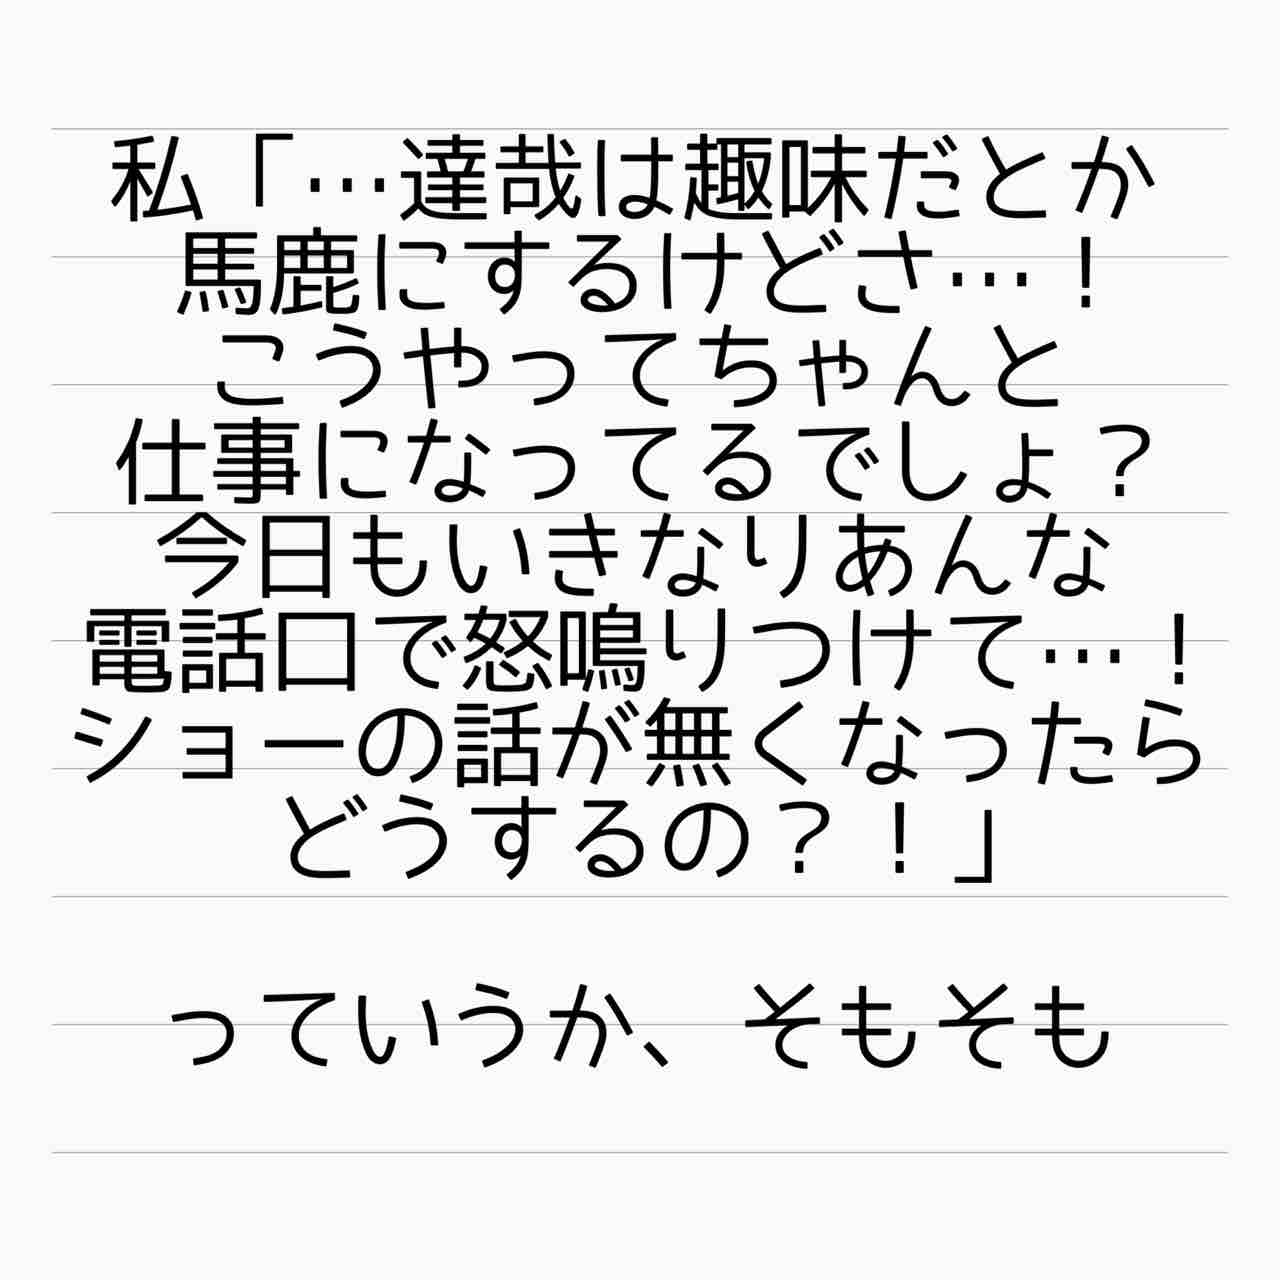 私「…達哉は趣味だとか
馬鹿にするけどさ…！
こうやってちゃんと
仕事になってるでしょ？
今日もいきなりあんな
電話口で怒鳴りつけて…！
ショーの話が無くなったら
どうするの？！」
っていうか、そもそも